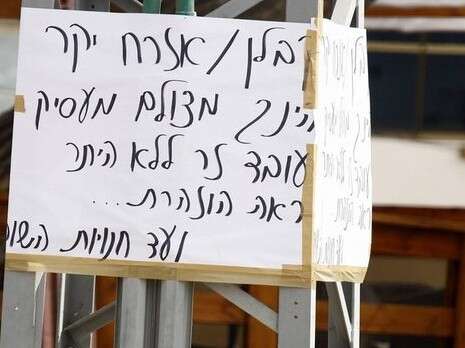 קבלן/אזרח יקר
הינך מצולם מעסיק
עובד זר ללא היתר
ראה הוזהרת...
ועד חנויות השוק